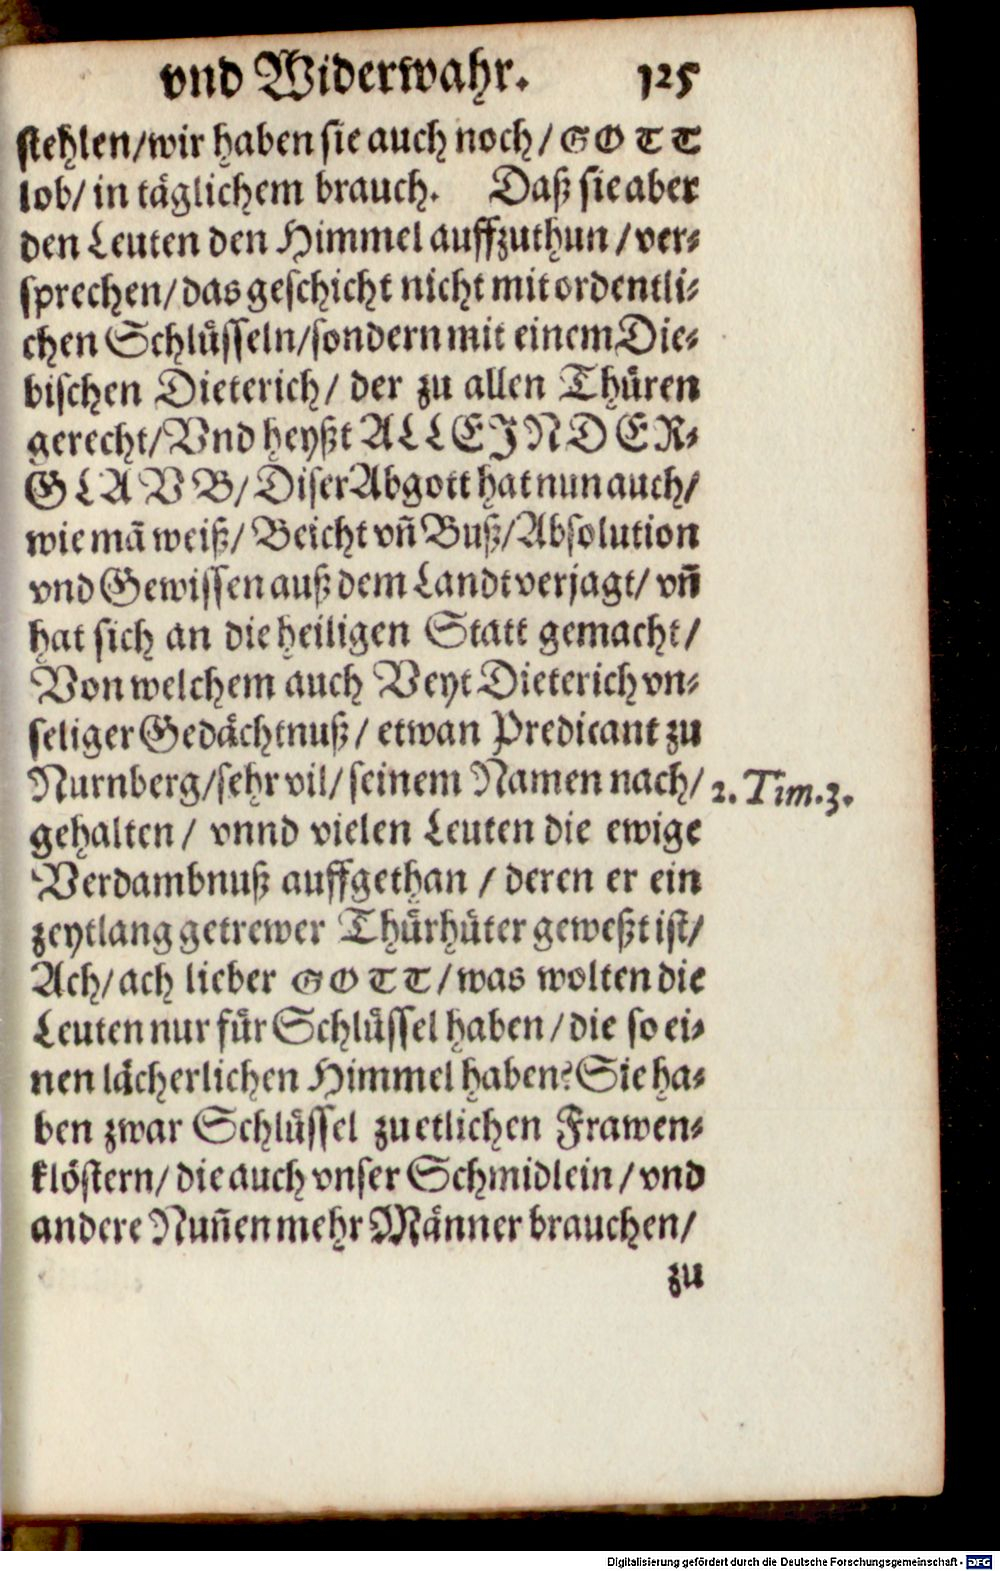 vnd Widerwahr. 125
stehlen/wir haben sie auch noch/ GOTT
lob/ in täglichem brauch. Daß sie aber
den Leuten den Himmel auffzuthun / ver-
sprechen/ das geschicht nicht mit ordentli-
chen Schlüsseln/sondern mit einem Die-
bischen Dieterich/ der zu allen Thüren
gerecht/ Vnd heyßt ALLEINDER-
GLAVB/ Diser Abgott hat nun auch/
wie mā weiß/ Beicht vñ Buß/ Absolution
vnd Gewissen auß dem Landt verjagt/ vñ
hat sich an die heiligen Statt gemacht/
Von welchem auch Veyt Dieterich vn-
seliger Gedächtnuß/ etwan Predicant zu
Nurnberg/sehr vil/ seinem Namen nach/ 2. Tim. 3.
gehalten / vnnd vielen Leuten die ewige
Verdambnuß auffgethan / deren er ein
zeytlang getrewer Thürhüter geweßt ist/
Ach/ ach lieber GOTT/ was wolten die
Leuten nur für Schlüssel haben/ die so ei-
nen lächerlichen Himmel haben? Sie ha-
ben zwar Schlüssel zu etlichen Frawen-
klöstern/ die auch vnser Schmidlein / vnd
andere Nuñen mehr Männer brauchen/
zu
Digitalisierung gefördert durch die Deutsche Forschungsgemeinschaft - DFG